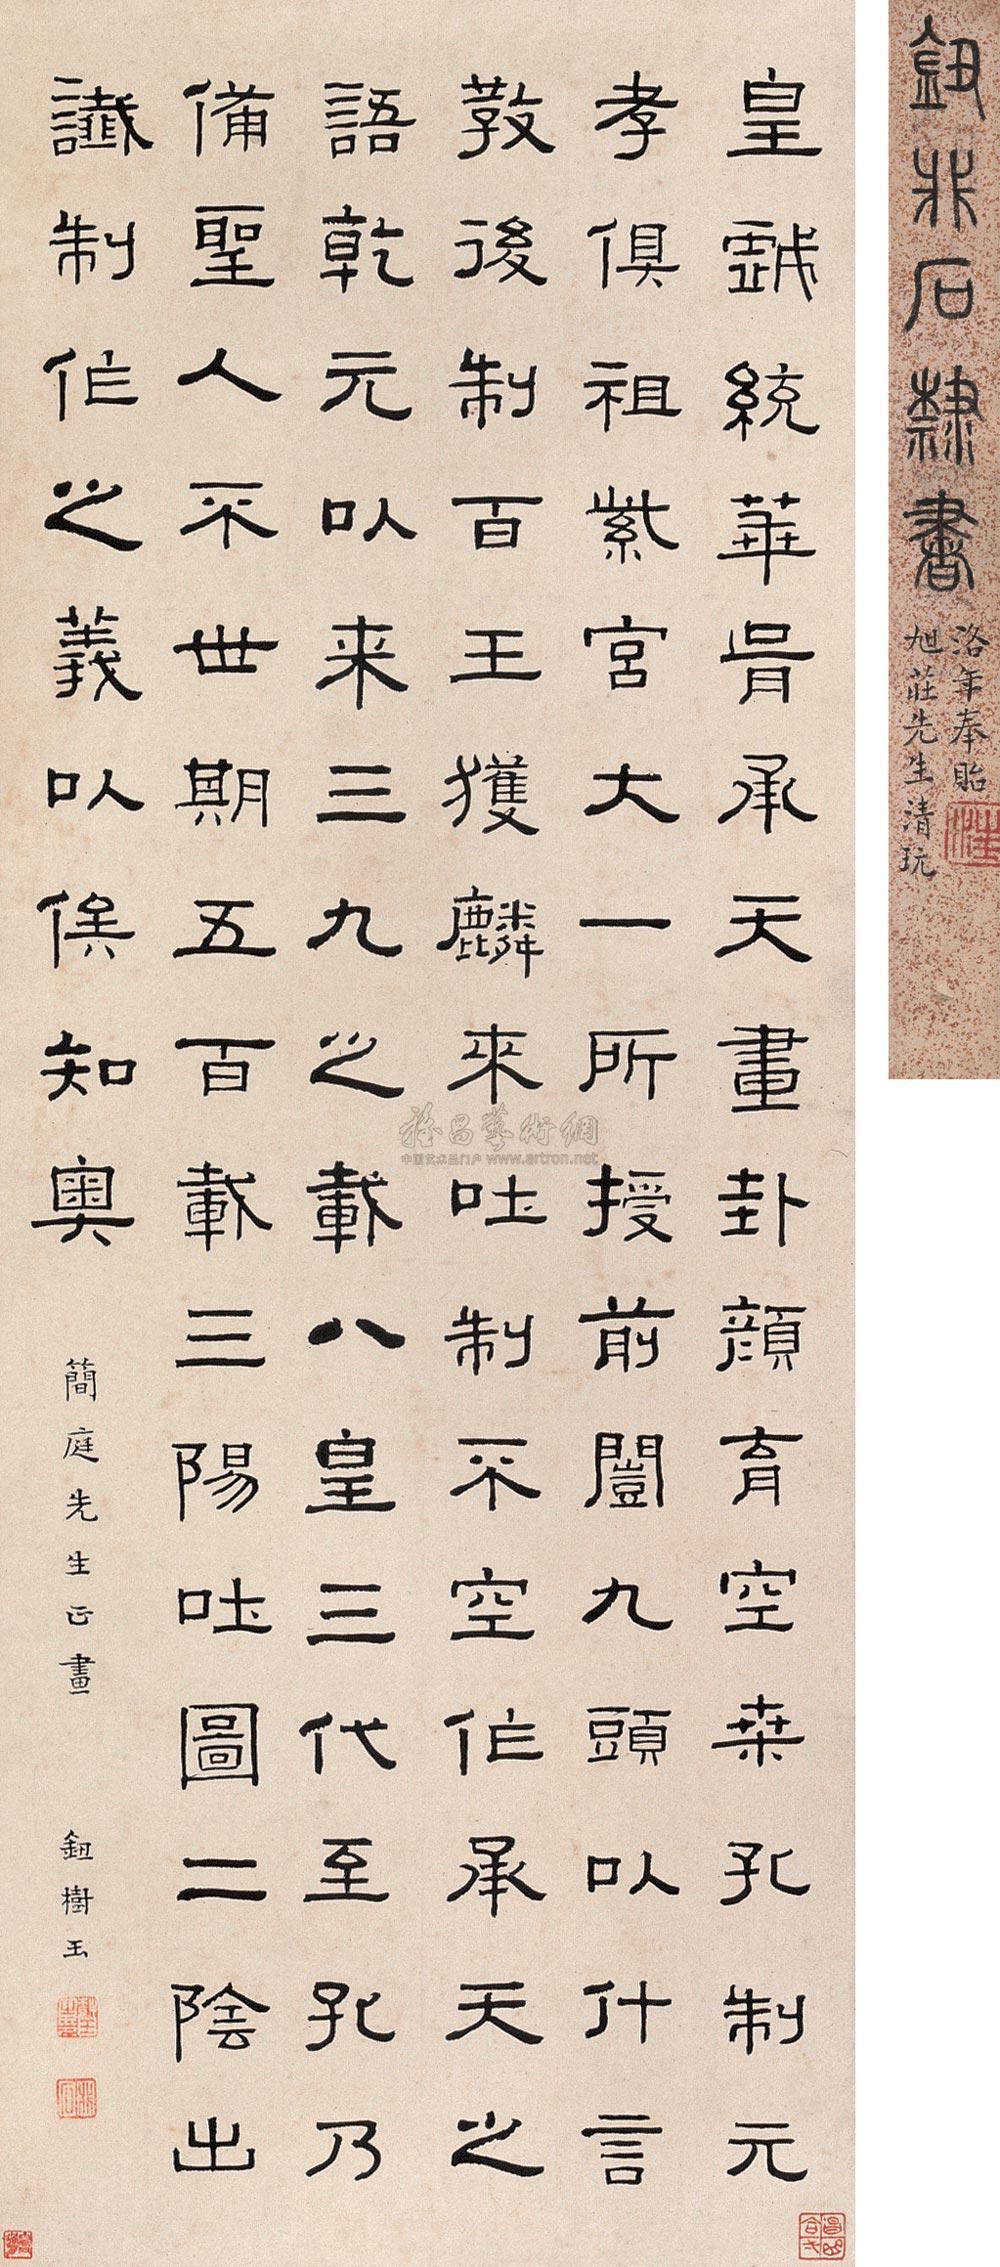 皇戲統華胥承天畫卦顏育空桑孔制元
孝俱祖紫宮大一所授前闓九頭以什言
教後制百王獲麟來吐制不空作承天之
語乾元以来三九之載八皇三代至孔乃
備聖人不世期五百載三陽吐圖二陰出
讖制作之義以俟知奥
簡庭先生正畫
鈕樹玉
鈕非石隸書
洛年奉貽
旭莊先生清玩
中国艺术品门户 www.artron.net